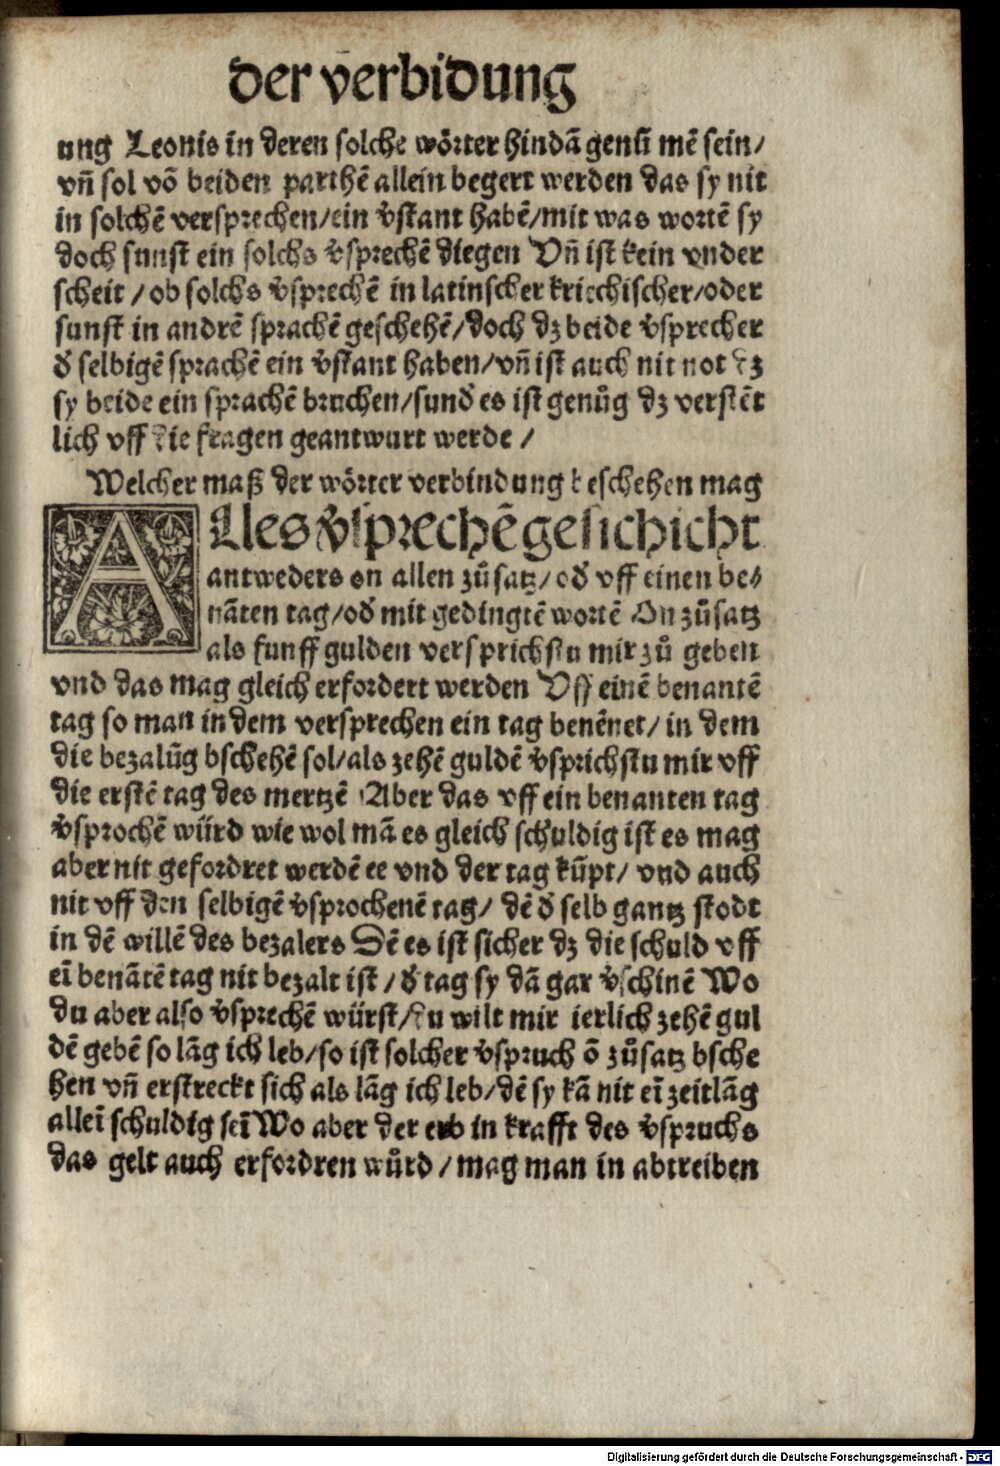 der verbidung
ung Leonis in deren solche wörter hindā genūmē sein/
vñ sol vō beiden parthē allein begert werden das sy nit
in solchē versprechen/ein v̓stant habē/mit was wortē sy
doch sunst ein solchs v̓sprechē diegen Vñ ist kein vnder
scheit/ob solchs v̓sprechē in latinscher kriechischer/oder
sunst in andrē sprachē geschehē/doch dz beide v̓sprecher
d̓ selbigē sprachē ein v̓stant haben/vñ ist auch nit not dz
sy beide ein sprachē bruchen/sund̓ es ist genůg dz verstēt
lich vff die fragen geantwurt werde/
Welcher maß der wörter verbindung beschehen mag
ALles v̓sprechē geschicht
antweders on allen zůsatz/od̓ vff einen be⸗
nāten tag/od̓ mit gedingtē wortē On zůsatz
als funff gulden versprichstu mir zů geben
vnd das mag gleich erfordert werden Vff einē benantē
tag so man in dem versprechen ein tag benēnet/in dem
die bezalūg bschehē sol/als zehē guldē v̓sprichstu mir vff
die erstē tag des mertzē Aber das vff ein benanten tag
v̓sprochē würd wie wol mā es gleich schuldig ist es mag
aber nit gefordret werdē ee vnd der tag kūpt/vnd auch
nit vff den selbigē v̓sprochenē tag/dē d̓ selb gantz stodt
in dē willē des bezalers Dē es ist sicher dz die schuld vff
eī benātē tag nit bezalt ist/d̓ tag sy dā gar v̓schinē Wo
du aber also v̓sprechē würst/du wilt mir ierlich zehē gul
dē gebē so lāg ich leb/so ist solcher v̓spruch ō zůsatz bsche
hen vñ erstreckt sich als lāg ich leb/dē sy kā nit eī zeitlāg
alleī schuldig seī Wo aber der erb in krafft des v̓spruchs
das gelt auch erfordren wůrd/mag man in abtreiben
Digitalisierung gefördert durch die Deutsche Forschungsgemeinschaft - DFG